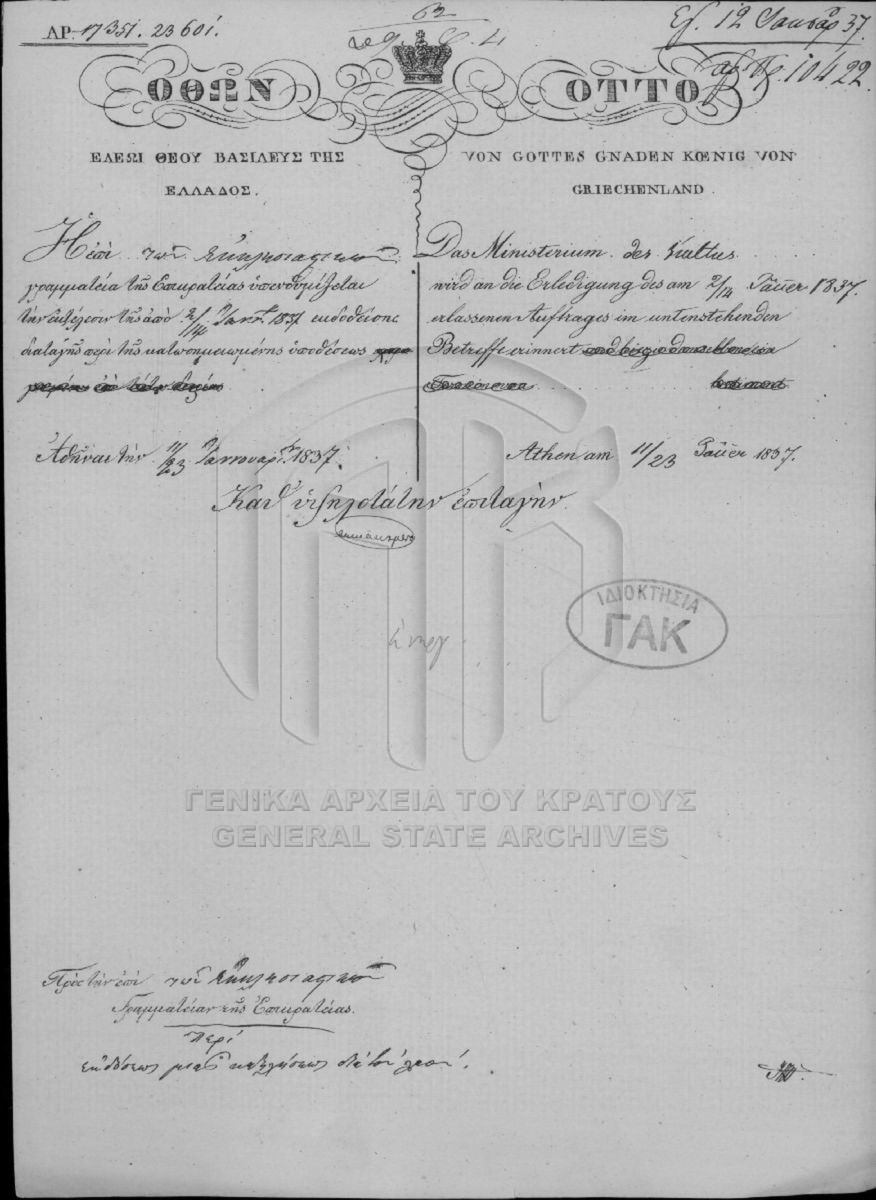 ΑΡ. 17351. 23601.
62
Εξ. 12 Ιανουαρ 37.
αρ. πρ. 10422
ΟΘΩΝ
ΕΛΕΩΙ ΘΕΟΥ ΒΑΣΙΛΕΥΣ ΤΗΣ
ΕΛΛΑΔΟΣ.
Ἡ ἐπὶ τῶν Ἐκκλησιαστικῶν
γραμματεία τῆς Επικρατείας ὑπενθυμίζεται
τὴν ἐκτέλεσιν τῆς ἀπὸ 2/14 Ἰαν. 1837 εκδοθείσης
διαταγῆς περὶ τῆς κατωσημειωμένης ὑποθέσεως
Ἀθῆναι τὴν 11/23 Ἰαννουαρ. 1837.
OTTO
VON GOTTES GNADEN KŒNIG VON
GRIECHENLAND.
Das Ministerium des Kultus
wird an die Erledigung des am 2/14 Jäner 1837.
erlassenen Auftrages im untenstehenden
Betreffe erinnert
Athen am 11/23 Jäner 1837.
Καθ' ὑψηλοτάτην ἐπιταγήν
ΙΔΙΟΚΤΗΣΙΑ
ΓΑΚ
ΓΕΝΙΚΑ ΑΡΧΕΙΑ ΤΟΥ ΚΡΑΤΟΥΣ
GENERAL STATE ARCHIVES
Πρὸς τὴν ἐπὶ τῶν Ἐκκλησιαστικῶν
Γραμματείαν τῆς Ἐπικρατείας.
περὶ
ἐκδόσεως μιᾶς